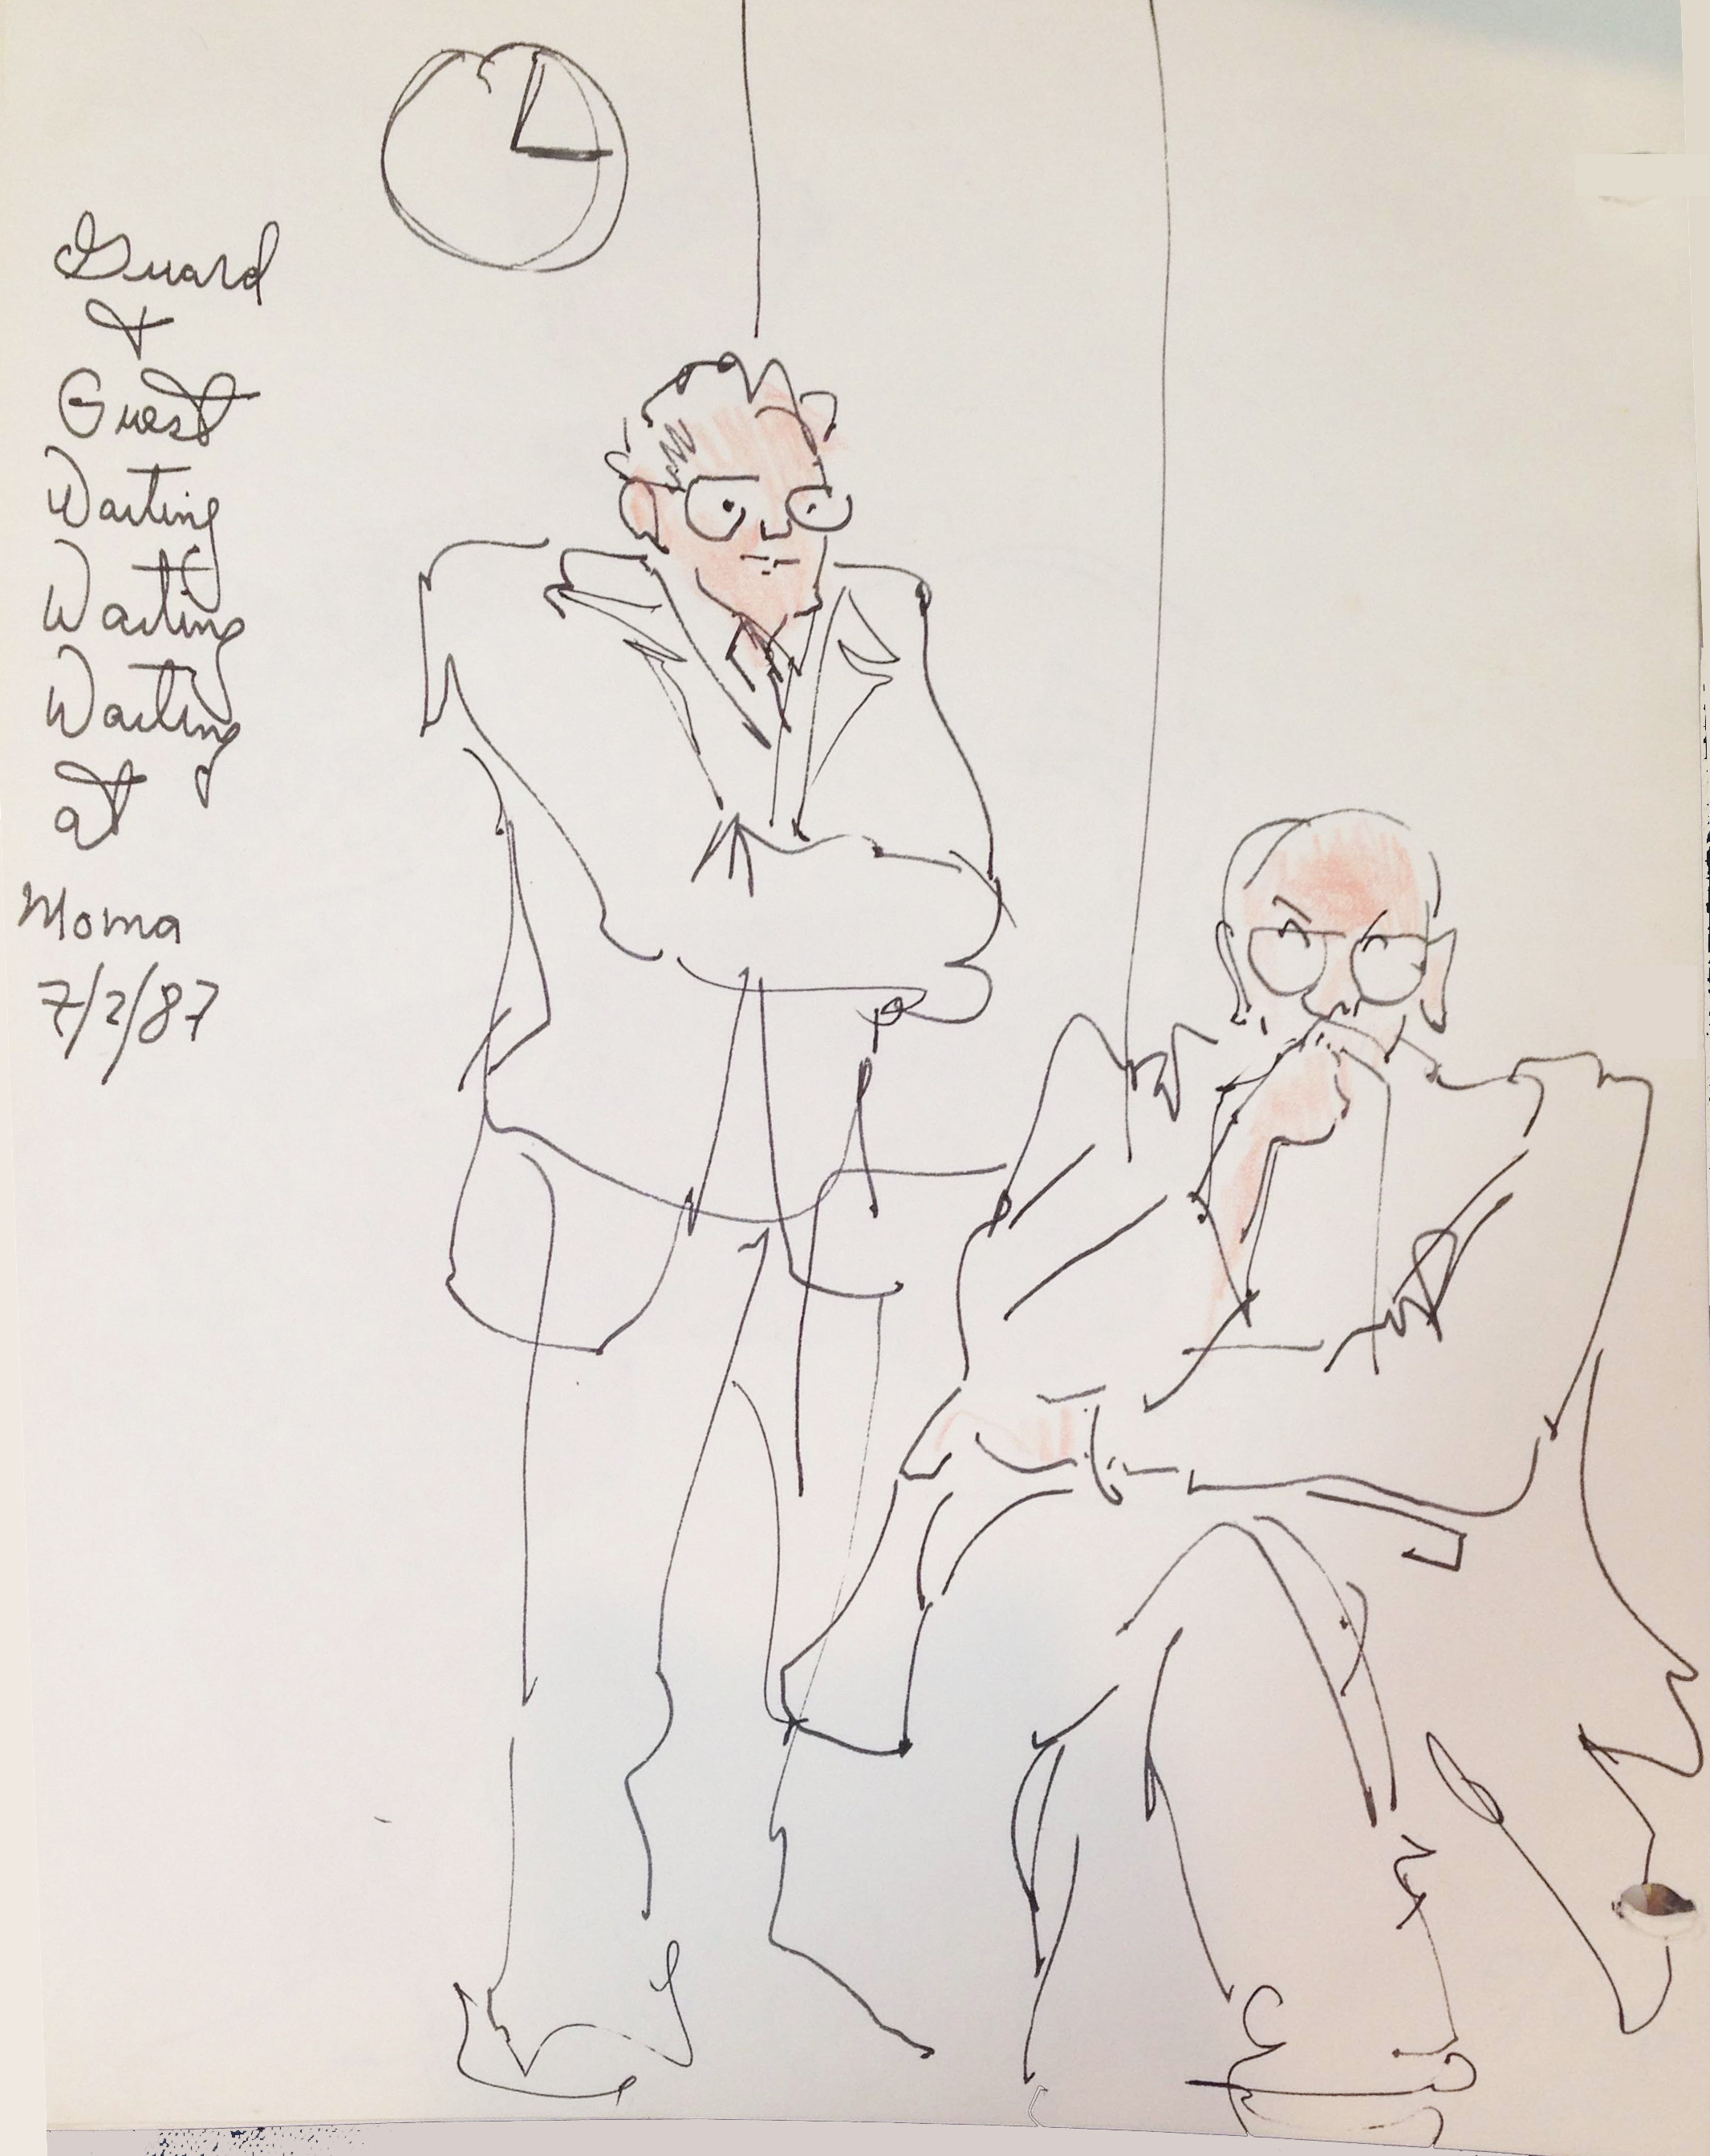 Guard
&
Guest
Waiting
Waiting
Waiting
at
Moma
7/2/87